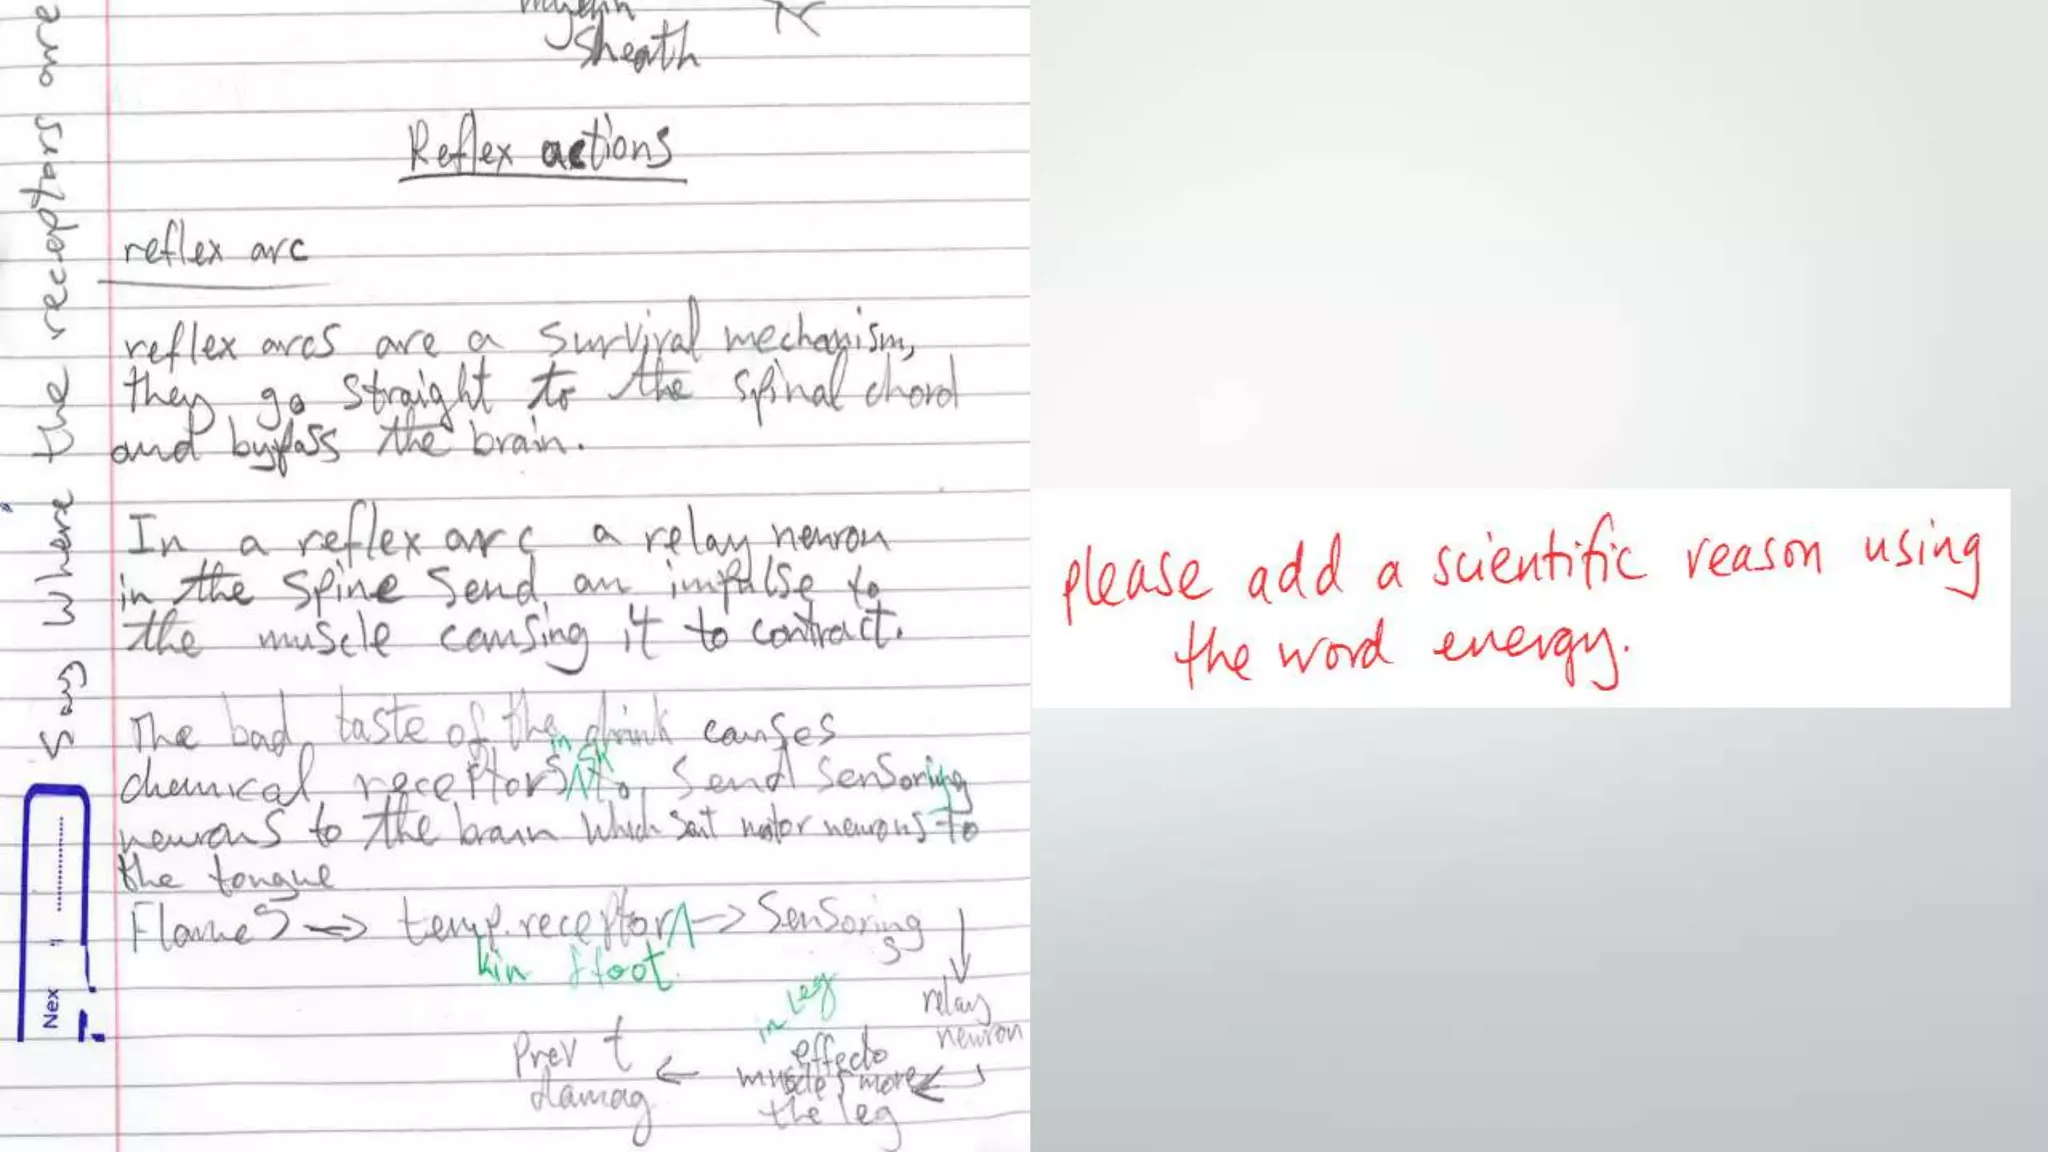 myelin
sheath
Reflex actions
reflex arc
reflex arcs are a survival mechanism,
they go straight to the spinal chord
and bypass the brain.
In a reflex arc a relay neuron
in the spine send an impulse to
the muscle causing it to contract.
The bad taste of the drink causes
in
chemical receptors to send sensoring
neurons to the brain which sent motor neurons to
the tongue
Flames → temp. receptor → Sensoring
foot
relay
neuron
in leg
effecto
muscles more
the leg
Prev t
damag
Say where the receptors are
Nex
please add a scientific reason using
the word energy.